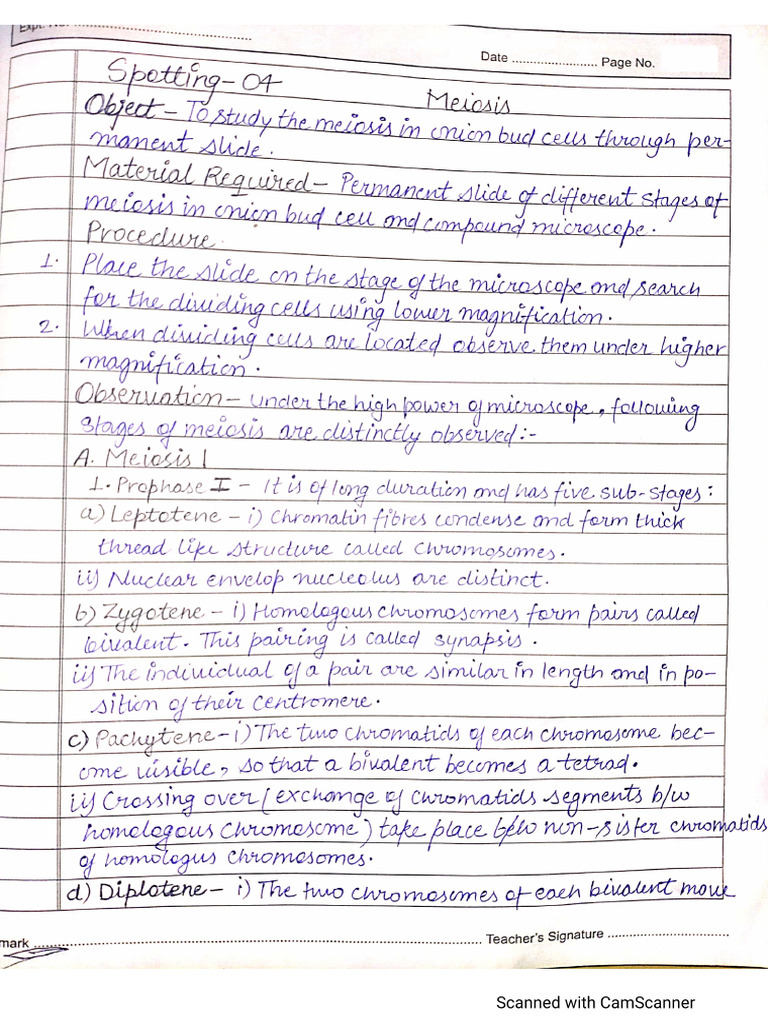 Date ........................ Page No.
Spotting-04
Meiosis
Object - To study the meiosis in onion bud cells through per-
manent slide.
Material Required - Permanent slide of different stages of
meiosis in onion bud cell and compound microscope.
Procedure
1. Place the slide on the stage of the microscope and search
for the dividing cells using lower magnification.
2. When dividing cells are located observe them under higher
magnification.
Observation - under the high power of microscope, following
stages of meiosis are distinctly observed:-
A. Meiosis I
1. Prophase I - It is of long duration and has five sub-stages:
a) Leptotene - i) Chromatin fibres condense and form thick
thread like structure called chromosomes.
ii) Nuclear envelop nucleolus are distinct.
b) Zygotene - i) Homologous chromosomes form pairs called
bivalent. This pairing is called synapsis.
ii) The individual of a pair are similar in length and in po-
sition of their centromere.
c) Pachytene - i) The two chromatids of each chromosome bec-
ome visible, so that a bivalent becomes a tetrad.
ii) Crossing over (exchange of chromatids segments b/w
homologous chromosome) take place b/w non-sister chromatids
of homologus chromosomes.
d) Diplotene - i) The two chromosomes of each bivalent move
mark ........................ Teacher's Signature ........................
Scanned with CamScanner